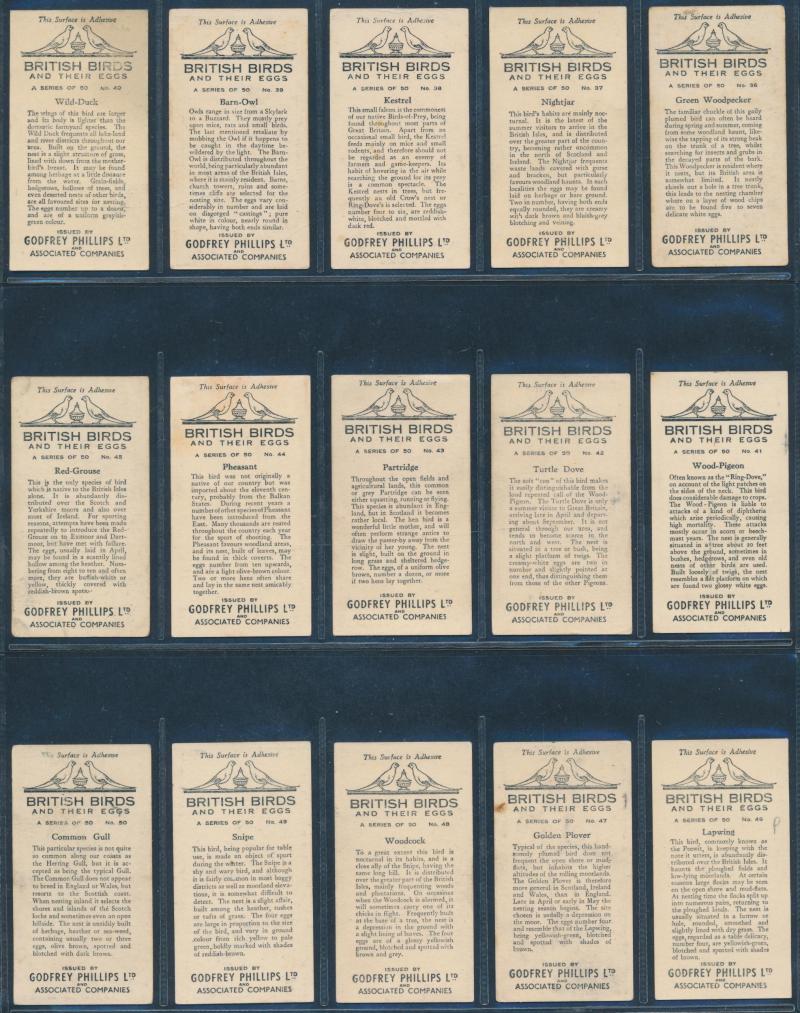 This Surface is Adhesive
BRITISH BIRDS
AND THEIR EGGS
A SERIES OF 50 No. 40
Wild-Duck
The wings of this bird are larger
and its body is lighter than the
domestic farmyard species. The
Wild Duck frequents all lake land
and river districts throughout our
area. Built on the ground, the
nest is a slight structure of grass,
lined with down from the mother-
bird's breast. It may be found
among herbage at a little distance
from the water. Grain-fields,
hedgerows, hollows of trees, and
even deserted nests of other birds,
are all favoured sites for nesting.
The eggs number up to a dozen,
and are of a uniform greyish-
green colour.
ISSUED BY
GODFREY PHILLIPS LTD
AND
ASSOCIATED COMPANIES
This Surface is Adhesive
BRITISH BIRDS
AND THEIR EGGS
A SERIES OF 50 No. 39
Barn-Owl
Owls range in size from a Skylark
to a Buzzard. They mostly prey
upon mice, rats and small birds.
The last mentioned retaliate by
mobbing the Owl if it happens to
be caught in the daytime be-
wildered by the light. The Barn-
Owl is distributed throughout the
world, being particularly abundant
in most areas of the British Isles,
where it is mainly resident. Barns,
church towers, ruins and some-
times cliffs are selected for the
nesting site. The eggs vary con-
siderably in number and are laid
on disgorged "castings"; pure
white in colour, nearly round in
shape, having both ends similar.
ISSUED BY
GODFREY PHILLIPS LTD
AND
ASSOCIATED COMPANIES
This Surface is Adhesive
BRITISH BIRDS
AND THEIR EGGS
A SERIES OF 50 No. 38
Kestrel
This small falcon is the commonest
of our native Birds-of-Prey, being
found throughout most parts of
Great Britain. Apart from an
occasional small bird, the Kestrel
feeds mainly on mice and small
rodents, and therefore should not
be regarded as an enemy of
farmers and game-keepers. Its
habit of hovering in the air while
searching the ground for its prey
is a common spectacle. The
Kestrel nests in trees, but fre-
quently an old Crow's nest or
Ring-Dove's is selected. The eggs
number four to six, are reddish-
white, blotched and mottled with
dark red.
ISSUED BY
GODFREY PHILLIPS LTD
AND
ASSOCIATED COMPANIES
This Surface is Adhesive
BRITISH BIRDS
AND THEIR EGGS
A SERIES OF 50 No. 37
Nightjar
This bird's habits are mainly noc-
turnal. It is the latest of the
summer visitors to arrive in the
British Isles, and is distributed
over the greater part of the coun-
try, becoming rather uncommon
in the north of Scotland and
Ireland. The Nightjar frequents
waste lands covered with gorse
and bracken, but particularly
favours woodland haunts. In such
localities the eggs may be found
laid on herbage or bare ground.
Two in number, having both ends
equally rounded, they are creamy
with dark brown and bluish-grey
blotching and veining.
ISSUED BY
GODFREY PHILLIPS LTD
AND
ASSOCIATED COMPANIES
This Surface is Adhesive
BRITISH BIRDS
AND THEIR EGGS
A SERIES OF 50 No. 36
Green Woodpecker
The familiar chuckle of this gaily
plumed bird can often be heard
during spring and summer, coming
from some woodland haunt, like-
wise the tapping of its strong beak
on the trunk of a tree, whilst
searching for insects and grubs in
the decayed parts of the bark.
This Woodpecker is resident where
it nests, but its British area is
somewhat limited. It neatly
chisels out a hole in a tree trunk,
this leads to the nesting chamber
where on a layer of wood chips
are to be found five to seven
delicate white eggs.
ISSUED BY
GODFREY PHILLIPS LTD
AND
ASSOCIATED COMPANIES
This Surface is Adhesive
BRITISH BIRDS
AND THEIR EGGS
A SERIES OF 50 No. 45
Red-Grouse
This is the only species of bird
which is native to the British Isles
alone. It is abundantly dis-
tributed over the Scotch and
Yorkshire moors and also over
most of Ireland. For sporting
reasons, attempts have been made
repeatedly to introduce the Red-
Grouse on to Exmoor and Dart-
moor, but have met with failure.
The eggs, usually laid in April,
may be found in a scantily lined
hollow among the heather. Num-
bering from eight to ten and often
more, they are buffish-white or
yellow, thickly covered with
reddish-brown spots.
ISSUED BY
GODFREY PHILLIPS LTD
AND
ASSOCIATED COMPANIES
This Surface is Adhesive
BRITISH BIRDS
AND THEIR EGGS
A SERIES OF 50 No. 44
Pheasant
This bird was not originally a
native of our country but was
imported about the eleventh cen-
tury, probably from the Balkan
States. During recent years a
number of other species of Pheasant
have been introduced from the
East. Many thousands are reared
throughout the country each year
for the sport of shooting. The
Pheasant favours woodland areas,
and its nest, built of leaves, may
be found in thick coverts. The
eggs number from ten upwards,
and are a light olive-brown colour.
Two or more hens often share
and lay in the same nest amicably
together.
ISSUED BY
GODFREY PHILLIPS LTD
AND
ASSOCIATED COMPANIES
This Surface is Adhesive
BRITISH BIRDS
AND THEIR EGGS
A SERIES OF 50 No. 43
Partridge
Throughout the open fields and
agricultural lands, this common
or grey Partridge can be seen
either squatting, running or flying.
This species is abundant in Eng-
land, but in Scotland it becomes
rather local. The hen bird is a
wonderful little mother, and will
often perform strange antics to
draw the passer-by away from the
vicinity of her young. The nest
is slight, built on the ground in
long grass and sheltered hedge-
row. The eggs, of a uniform olive
brown, number a dozen, or more
if two hens lay together.
ISSUED BY
GODFREY PHILLIPS LTD
AND
ASSOCIATED COMPANIES
This Surface is Adhesive
BRITISH BIRDS
AND THEIR EGGS
A SERIES OF 50 No. 42
Turtle Dove
The soft "coo" of this bird makes
it easily distinguishable from the
loud repeated call of the Wood-
Pigeon. The Turtle Dove is only
a summer visitor to Great Britain,
arriving late in April and depart-
ing about September. It is not
general through our area, and
tends to become scarce in the
north and west. The nest is
situated in a tree or bush, being
a slight platform of twigs. The
creamy-white eggs are two in
number and slightly pointed at
one end, thus distinguishing them
from those of the other Pigeons.
ISSUED BY
GODFREY PHILLIPS LTD
AND
ASSOCIATED COMPANIES
This Surface is Adhesive
BRITISH BIRDS
AND THEIR EGGS
A SERIES OF 50 No. 41
Wood-Pigeon
Often known as the "Ring-Dove,"
on account of the light patches on
the sides of the neck. This bird
does considerable damage to crops.
The Wood-Pigeon is liable to
attacks of a kind of diphtheria
which arise periodically, causing
high mortality. These attacks
mostly occur in acorn or beech-
mast years. The nest is generally
situated in a tree about 20 feet
above the ground, sometimes in
bushes, hedgerows, and even old
nests of other birds are used.
Built loosely of twigs, the nest
resembles a flat platform on which
are found two glossy white eggs.
ISSUED BY
GODFREY PHILLIPS LTD
AND
ASSOCIATED COMPANIES
This Surface is Adhesive
BRITISH BIRDS
AND THEIR EGGS
A SERIES OF 50 No. 50
Common Gull
This particular species is not quite
so common along our coasts as
the Herring Gull, but it is ac-
cepted as being the typical Gull.
The Common Gull does not appear
to breed in England or Wales, but
resorts to the Scottish coast.
When nesting inland it selects the
shores and islands of the Scotch
lochs and sometimes even an open
hillside. The nest is untidily built
of herbage, heather or sea-weed,
containing usually two or three
eggs, olive brown, spotted and
blotched with dark brown.
ISSUED BY
GODFREY PHILLIPS LTD
AND
ASSOCIATED COMPANIES
This Surface is Adhesive
BRITISH BIRDS
AND THEIR EGGS
A SERIES OF 50 No. 49
Snipe
This bird, being popular for table
use, is made an object of sport
during the winter. The Snipe is a
shy and wary bird, and although
it is fairly common in most boggy
districts or well as moorland eleva-
tions, it is somewhat difficult to
detect. The nest is a slight affair,
built among the heather, rushes
or tufts of grass. The four eggs
are large in proportion to the size
of the bird, and vary in ground
colour from rich yellow to pale
green, boldly marked with shades
of reddish-brown.
ISSUED BY
GODFREY PHILLIPS LTD
AND
ASSOCIATED COMPANIES
This Surface is Adhesive
BRITISH BIRDS
AND THEIR EGGS
A SERIES OF 50 No. 48
Woodcock
To a great extent this bird is
nocturnal in its habits, and is a
close ally of the Snipe, having the
same long bill. It is distributed
over the greater part of the British
Isles, mainly frequenting woods
and plantations. On occasions
when the Woodcock is alarmed, it
will sometimes carry one of its
chicks in flight. Frequently built
at the base of a tree, the nest is
a depression in the ground with
a slight lining of leaves. The four
eggs are of a glossy yellowish
ground, blotched and spotted with
brown and grey.
ISSUED BY
GODFREY PHILLIPS LTD
AND
ASSOCIATED COMPANIES
This Surface is Adhesive
BRITISH BIRDS
AND THEIR EGGS
A SERIES OF 50 No. 47
Golden Plover
Typical of the species, this hand-
somely plumed bird does not
frequent the open shore or mud-
flats, but inhabits the higher
altitudes of the rolling moorlands.
The Golden Plover is therefore
more general in Scotland, Ireland
and Wales, than in England.
Late in April or early in May the
nesting season begins. The site
chosen is usually a depression on
the moor. The eggs number four
and resemble that of the Lapwing,
being yellowish-green, blotched
and spotted with shades of
brown.
ISSUED BY
GODFREY PHILLIPS LTD
AND
ASSOCIATED COMPANIES
This Surface is Adhesive
BRITISH BIRDS
AND THEIR EGGS
A SERIES OF 50 No. 46
P
Lapwing
This bird, commonly known as
the Peewit, in keeping with the
note it utters, is abundantly dis-
tributed over the British Isles. It
haunts the ploughed fields and
low-lying moorlands. At certain
seasons large flocks may be seen
on the open shore and mud-flats.
At nesting time the flocks split up
into numerous pairs, returning to
the ploughed lands. The nest is
usually situated in a furrow or
hole, rounded, smoothed and
slightly lined with dry grass. The
eggs, regarded as a table delicacy,
number four, are yellowish-green,
blotched and spotted with shades
of brown.
ISSUED BY
GODFREY PHILLIPS LTD
AND
ASSOCIATED COMPANIES